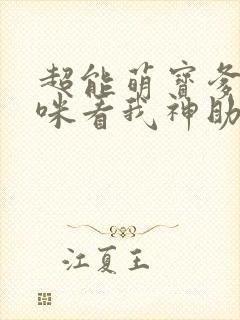 超能萌宝爹
咪看我神助
江夏王